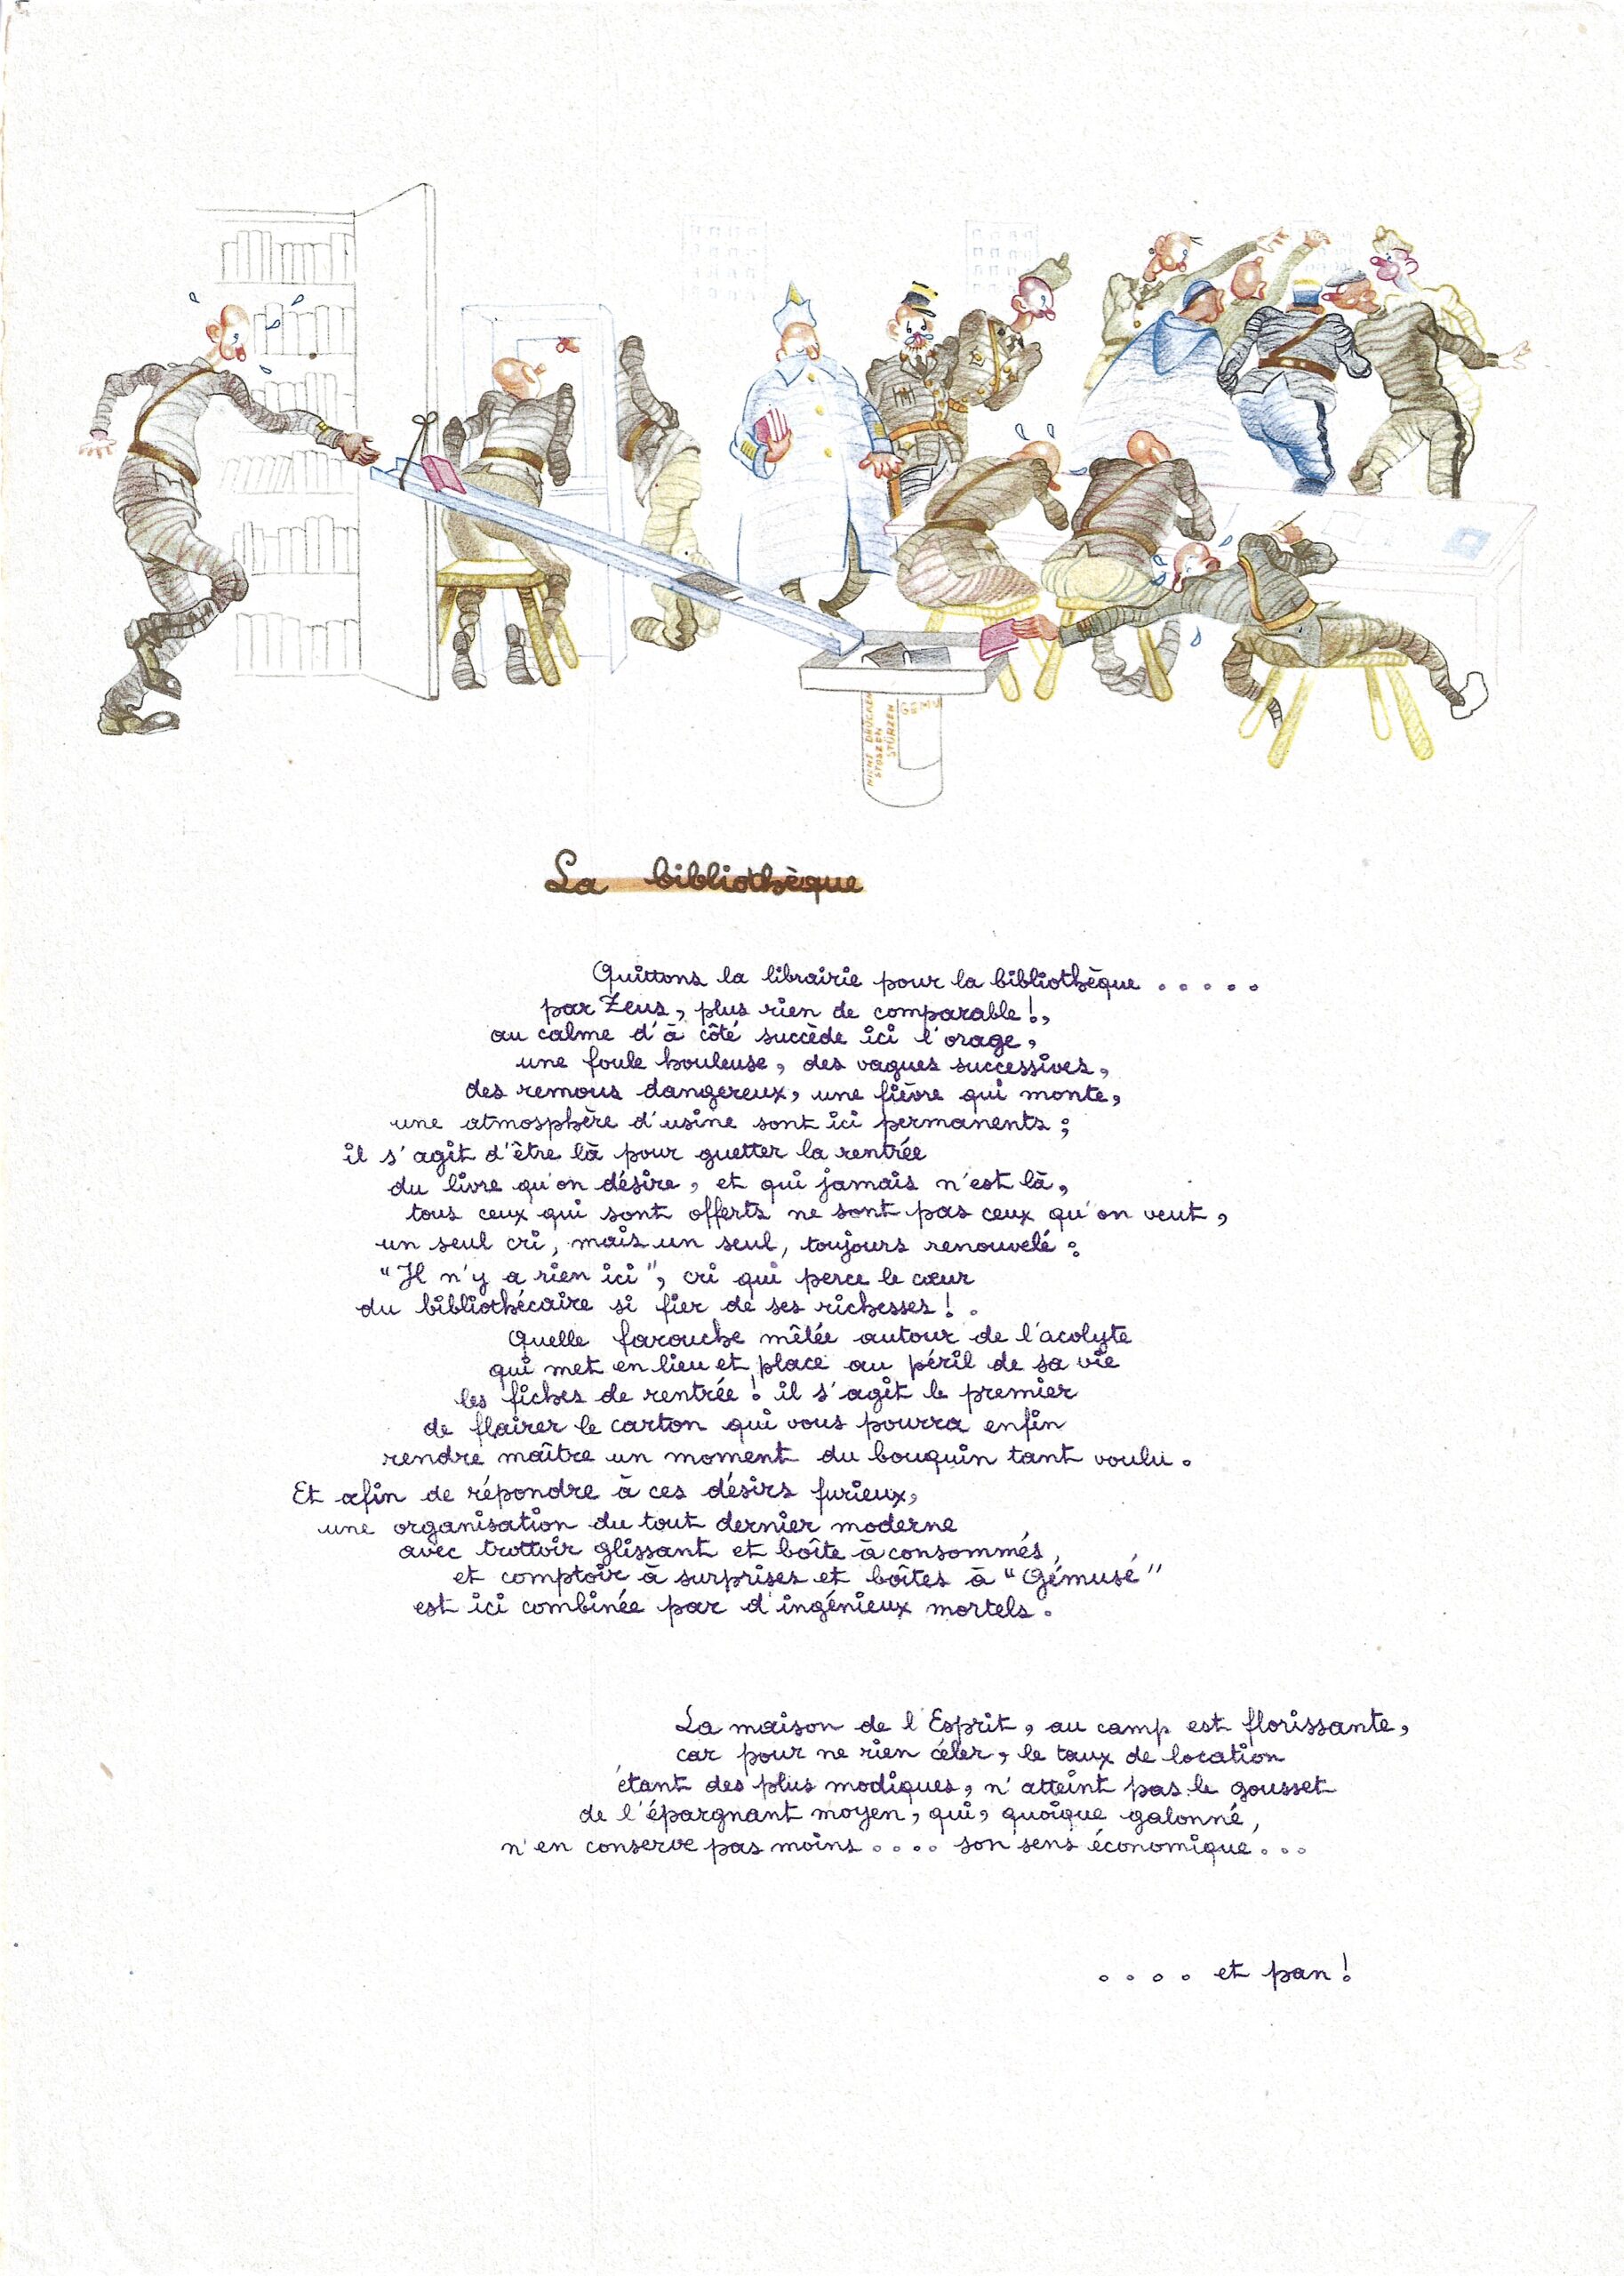 NICHT DRÜCKEN
STOSZEN
STÜRZEN
GEMÜ
La bibliothèque
Quittons la librairie pour la bibliothèque . . . . .
par Zeus, plus rien de comparable !,
au calme d'à côté succède ici l'orage,
une foule houleuse, des vagues successives,
des remous dangereux, une fièvre qui monte,
une atmosphère d'usine sont ici permanents ;
il s'agit d'être là pour guetter la rentrée
du livre qu'on désire, et qui jamais n'est là,
tous ceux qui sont offerts ne sont pas ceux qu'on veut,
un seul cri, mais un seul, toujours renouvelé :
"Il n'y a rien ici", cri qui perce le cœur
du bibliothécaire si fier de ses richesses ! .
Quelle farouche mêlée autour de l'acolyte
qui met en lieu et place au péril de sa vie
les fiches de rentrée ! il s'agit le premier
de flairer le carton qui vous pourra enfin
rendre maître un moment du bouquin tant voulu .
Et afin de répondre à ces désirs furieux,
une organisation du tout dernier moderne
avec trottoir glissant et boîte à consommés,
et comptoir à surprises et boîtes à "Gémusé"
est ici combinée par d'ingénieux mortels .
La maison de l'Esprit, au camp est florissante,
car pour ne rien céler, le taux de location
étant des plus modiques, n'atteint pas le gousset
de l'épargnant moyen, qui, quoique galonné,
n'en conserve pas moins . . . . son sens économique . . .
. . . . et pan !